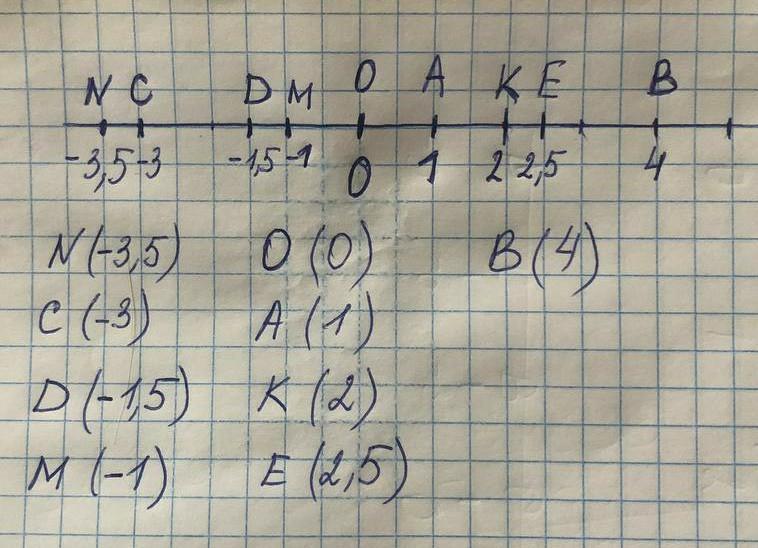 N C D M O A K E B
-3,5 -3 -1,5 -1 0 1 2 2,5 4
N (-3,5) O (0) B (4)
C (-3) A (1)
D (-1,5) K (2)
M (-1) E (2,5)